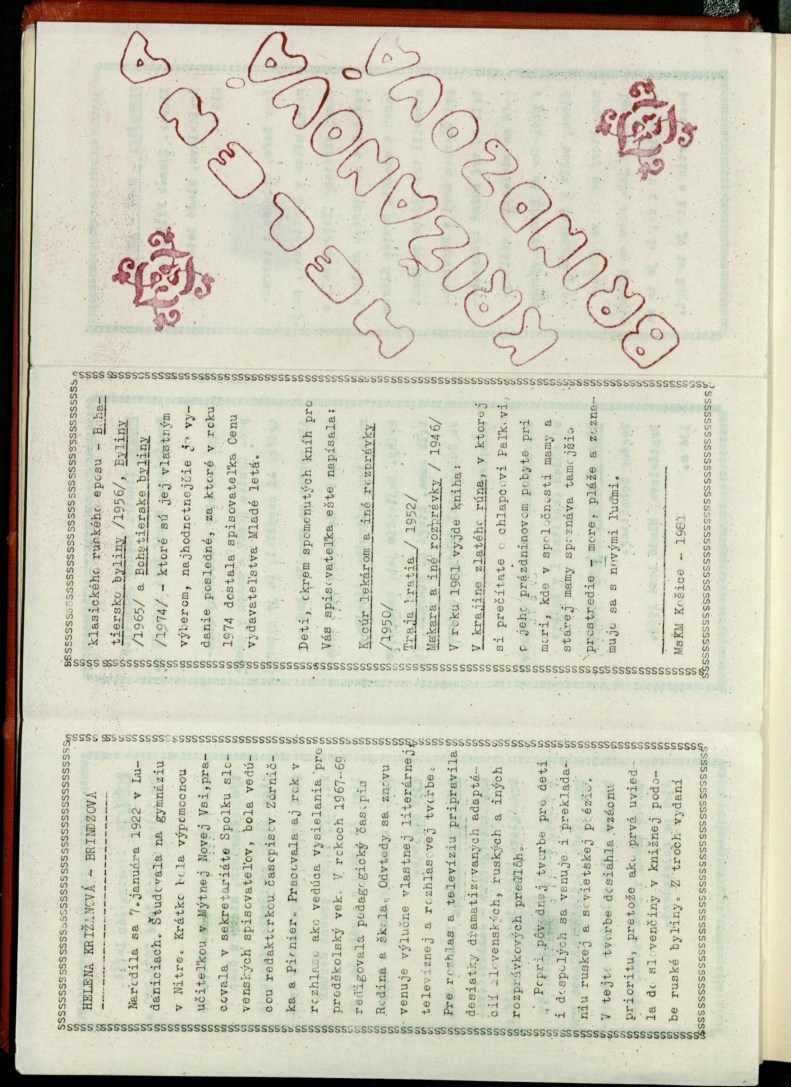 HELENA
KRIŽANOVÁ
BRINDZOVÁ
HELENA KRIŽANOVÁ - BRINDZOVÁ
Narodila sa 7.januára 1922 v Lu-
daniciach. Študovala na gymnáziu
v Nitre. Krátko bola výpomocnou
učiteľkou v Mýtnej Novej Vsi, pra-
covala v sekretariáte Spolku slo-
venských spisovateľov, bola vedú-
cou redaktorkou časopisov Zornič-
ka a Pionier. Pracovala aj rok v
rozhlase ako vedúca vysielania pre
predškolský vek. V rokoch 1967-69
redigovala pedagogický časopis
Rodina a škola. Odvtedy sa znovu
venuje výlučne vlastnej literárnej,
televíznej a rozhlasovej tvorbe.
Pre rozhlas a televíziu pripravila
desiatky dramatizovaných adaptá-
cií slovenských, ruských a iných
rozprávkových predlôh.
Popri pôvodnej tvorbe pre deti
i dospelých sa venuje i preklada-
niu ruskej a sovietskej poézie.
V tejto tvorbe dosiahla vzácnu
prioritu, pretože ako prvá uvied-
la do slovenčiny v knižnej podo-
be ruské byliny. Z troch vydaní
klasického ruského eposu - Boha-
tierske byliny /1956/, Byliny
/1965/ a Bohatierske byliny
/1974/ - ktoré sú jej vlastným
výberom, najhodnotnejšie je vy-
danie posledné, za ktoré v roku
1974 dostala spisovateľka Cenu
vydavateľstva Mladé letá.
Deti, okrem spomenutých kníh pre
Vás spisovateľka ešte napísala:
Kocúr lekárom a iné rozprávky
/1950/
Traja bratia / 1952/
Makara a iné rozprávky / 1946/
V roku 1981 vyjde kniha:
V krajine zlatého rúna, v ktorej
si prečítate o chlapcovi Paľkovi,
o jeho prázdninovom pobyte pri
mori, kde v spoločnosti mamy a
starej mamy spoznáva tamojšie
prostredie - more, pláže a zozna-
muje sa s novými ľuďmi.
MsKM Košice - 1981